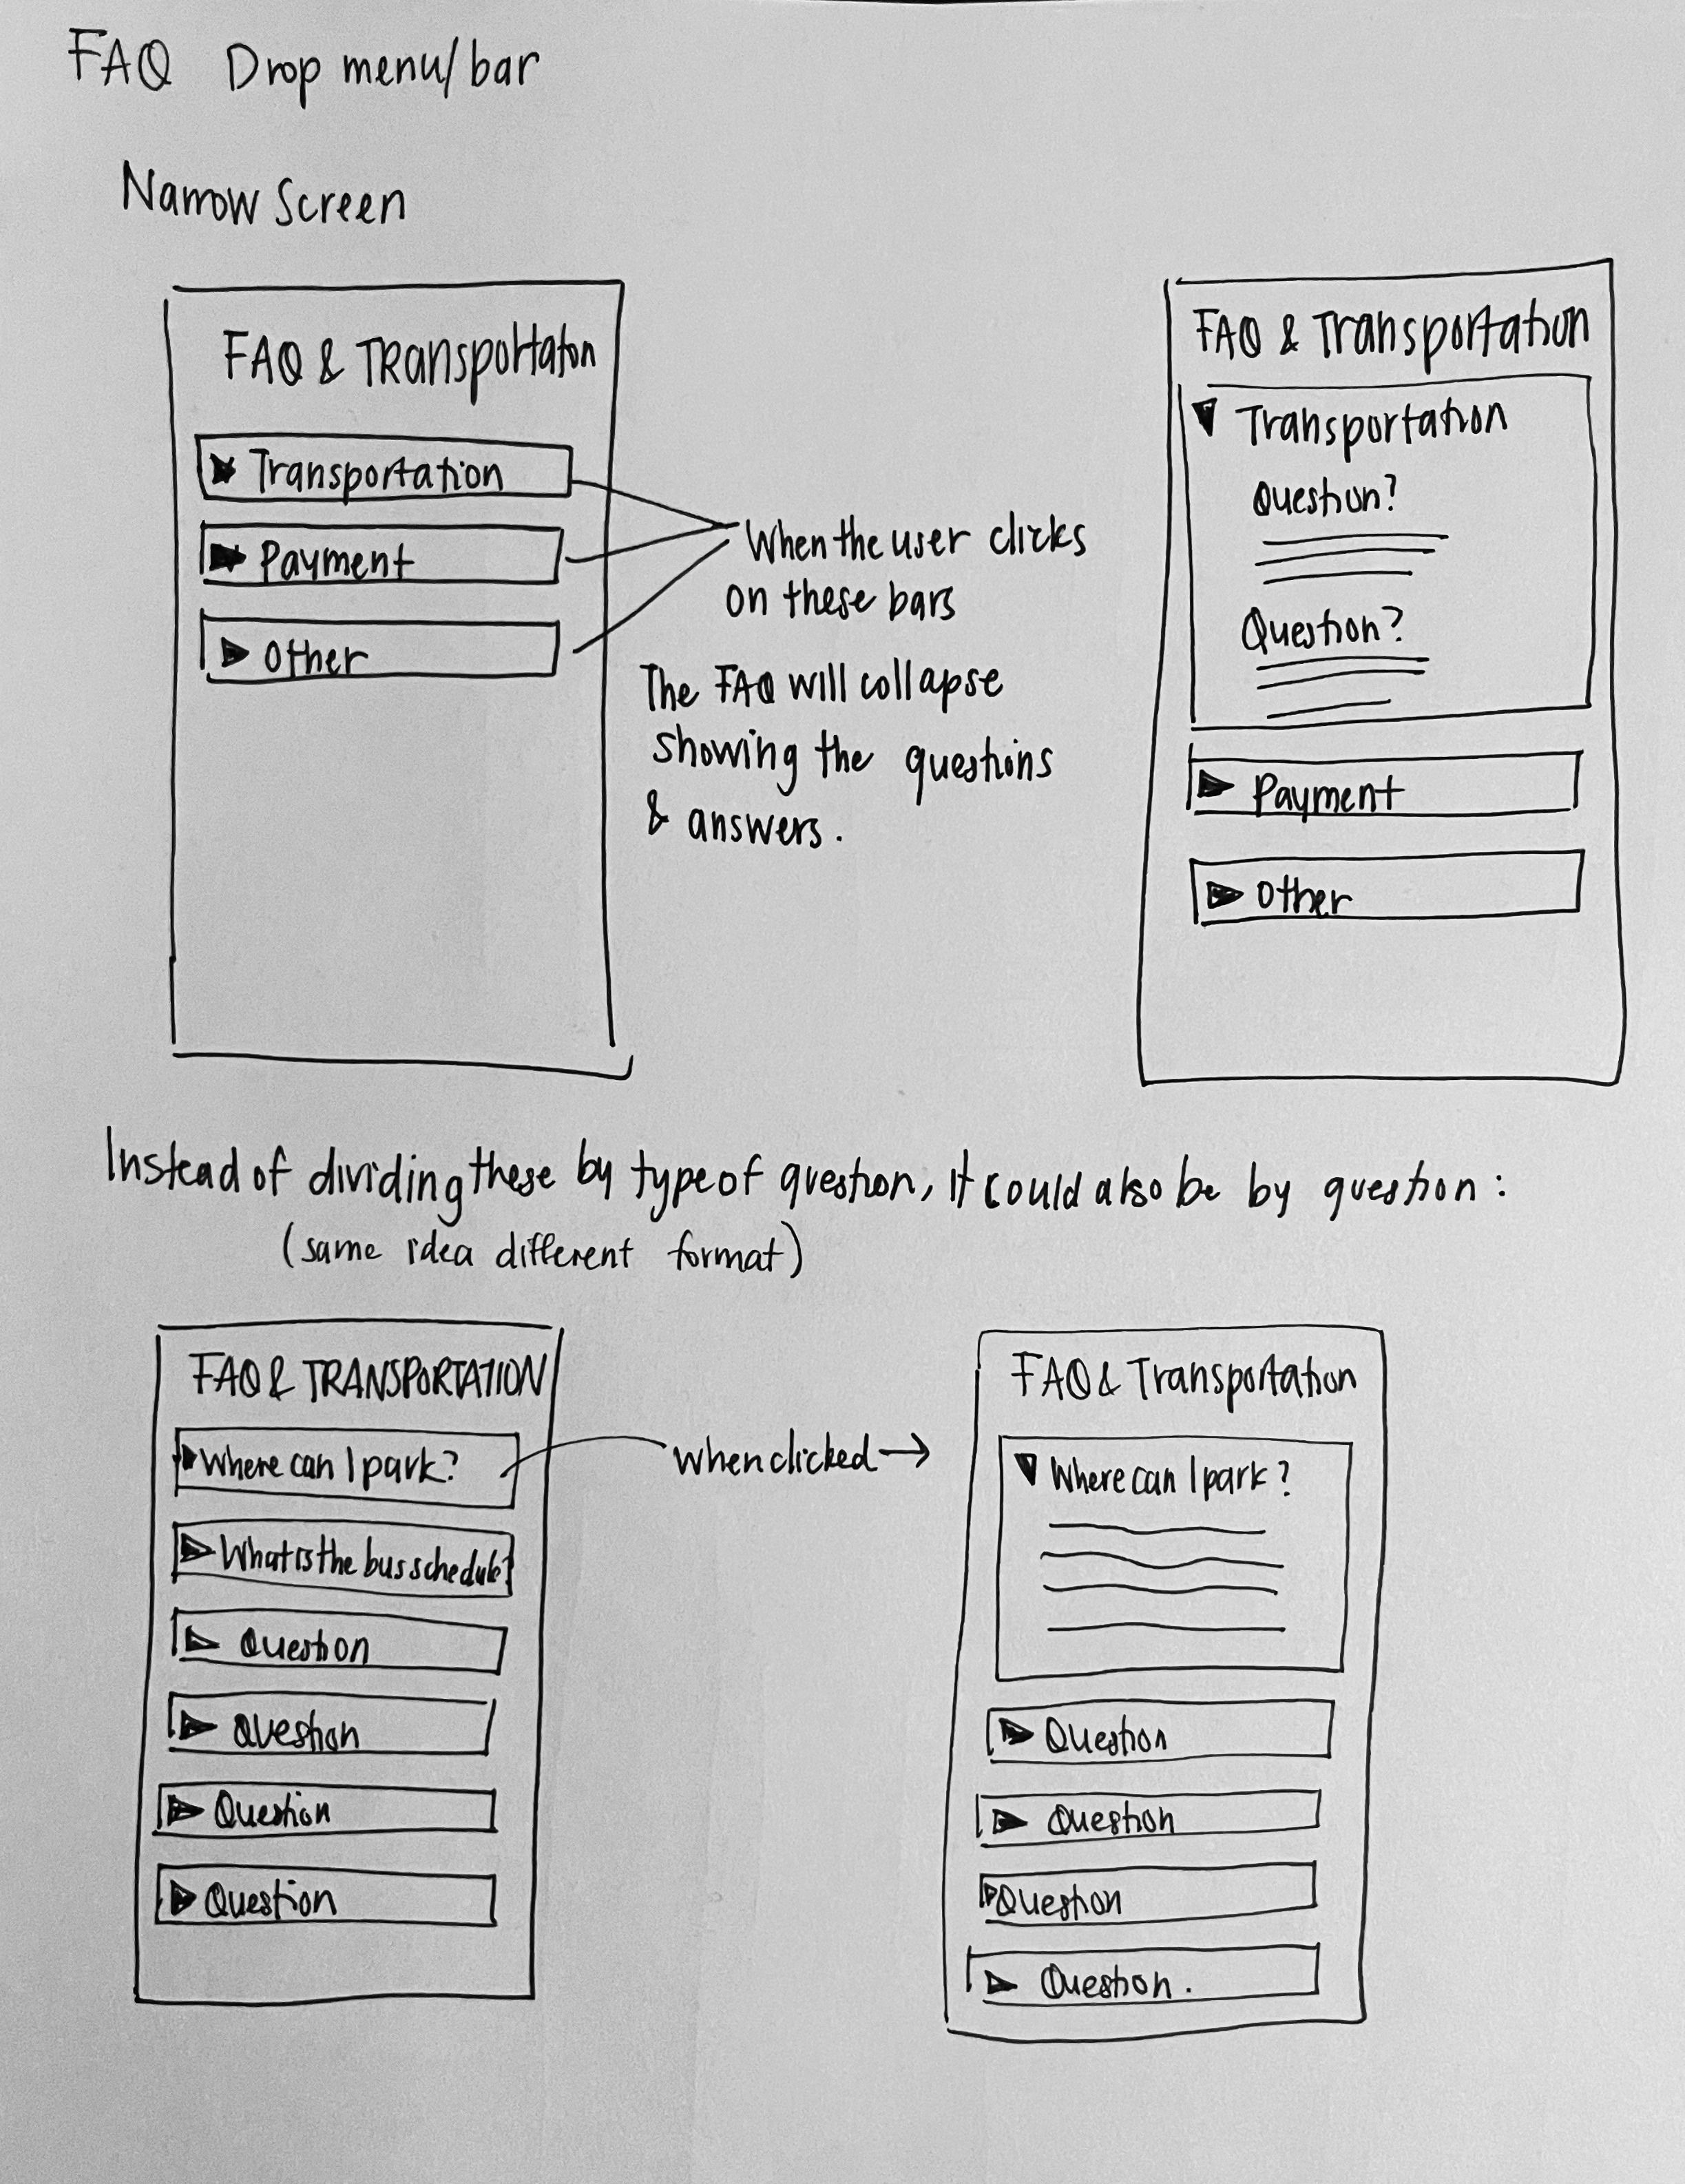 FAQ Drop menu/bar
Narrow Screen
FAQ & TRansportaton
Transportation
Payment
Other
When the user clicks
on these bars
The FAQ will collapse
showing the questions
& answers.
FAQ & Transportation
Transportation
Question?
Question?
Payment
Other
Instead of dividing these by type of question, it could also be by question:
(same idea different format)
FAQ & TRANSPORTATION
Where can I park?
What is the bus schedule?
Question
Question
Question
Question
when clicked →
FAQ & Transportation
Where can I park?
Question
Question
Question
Question.